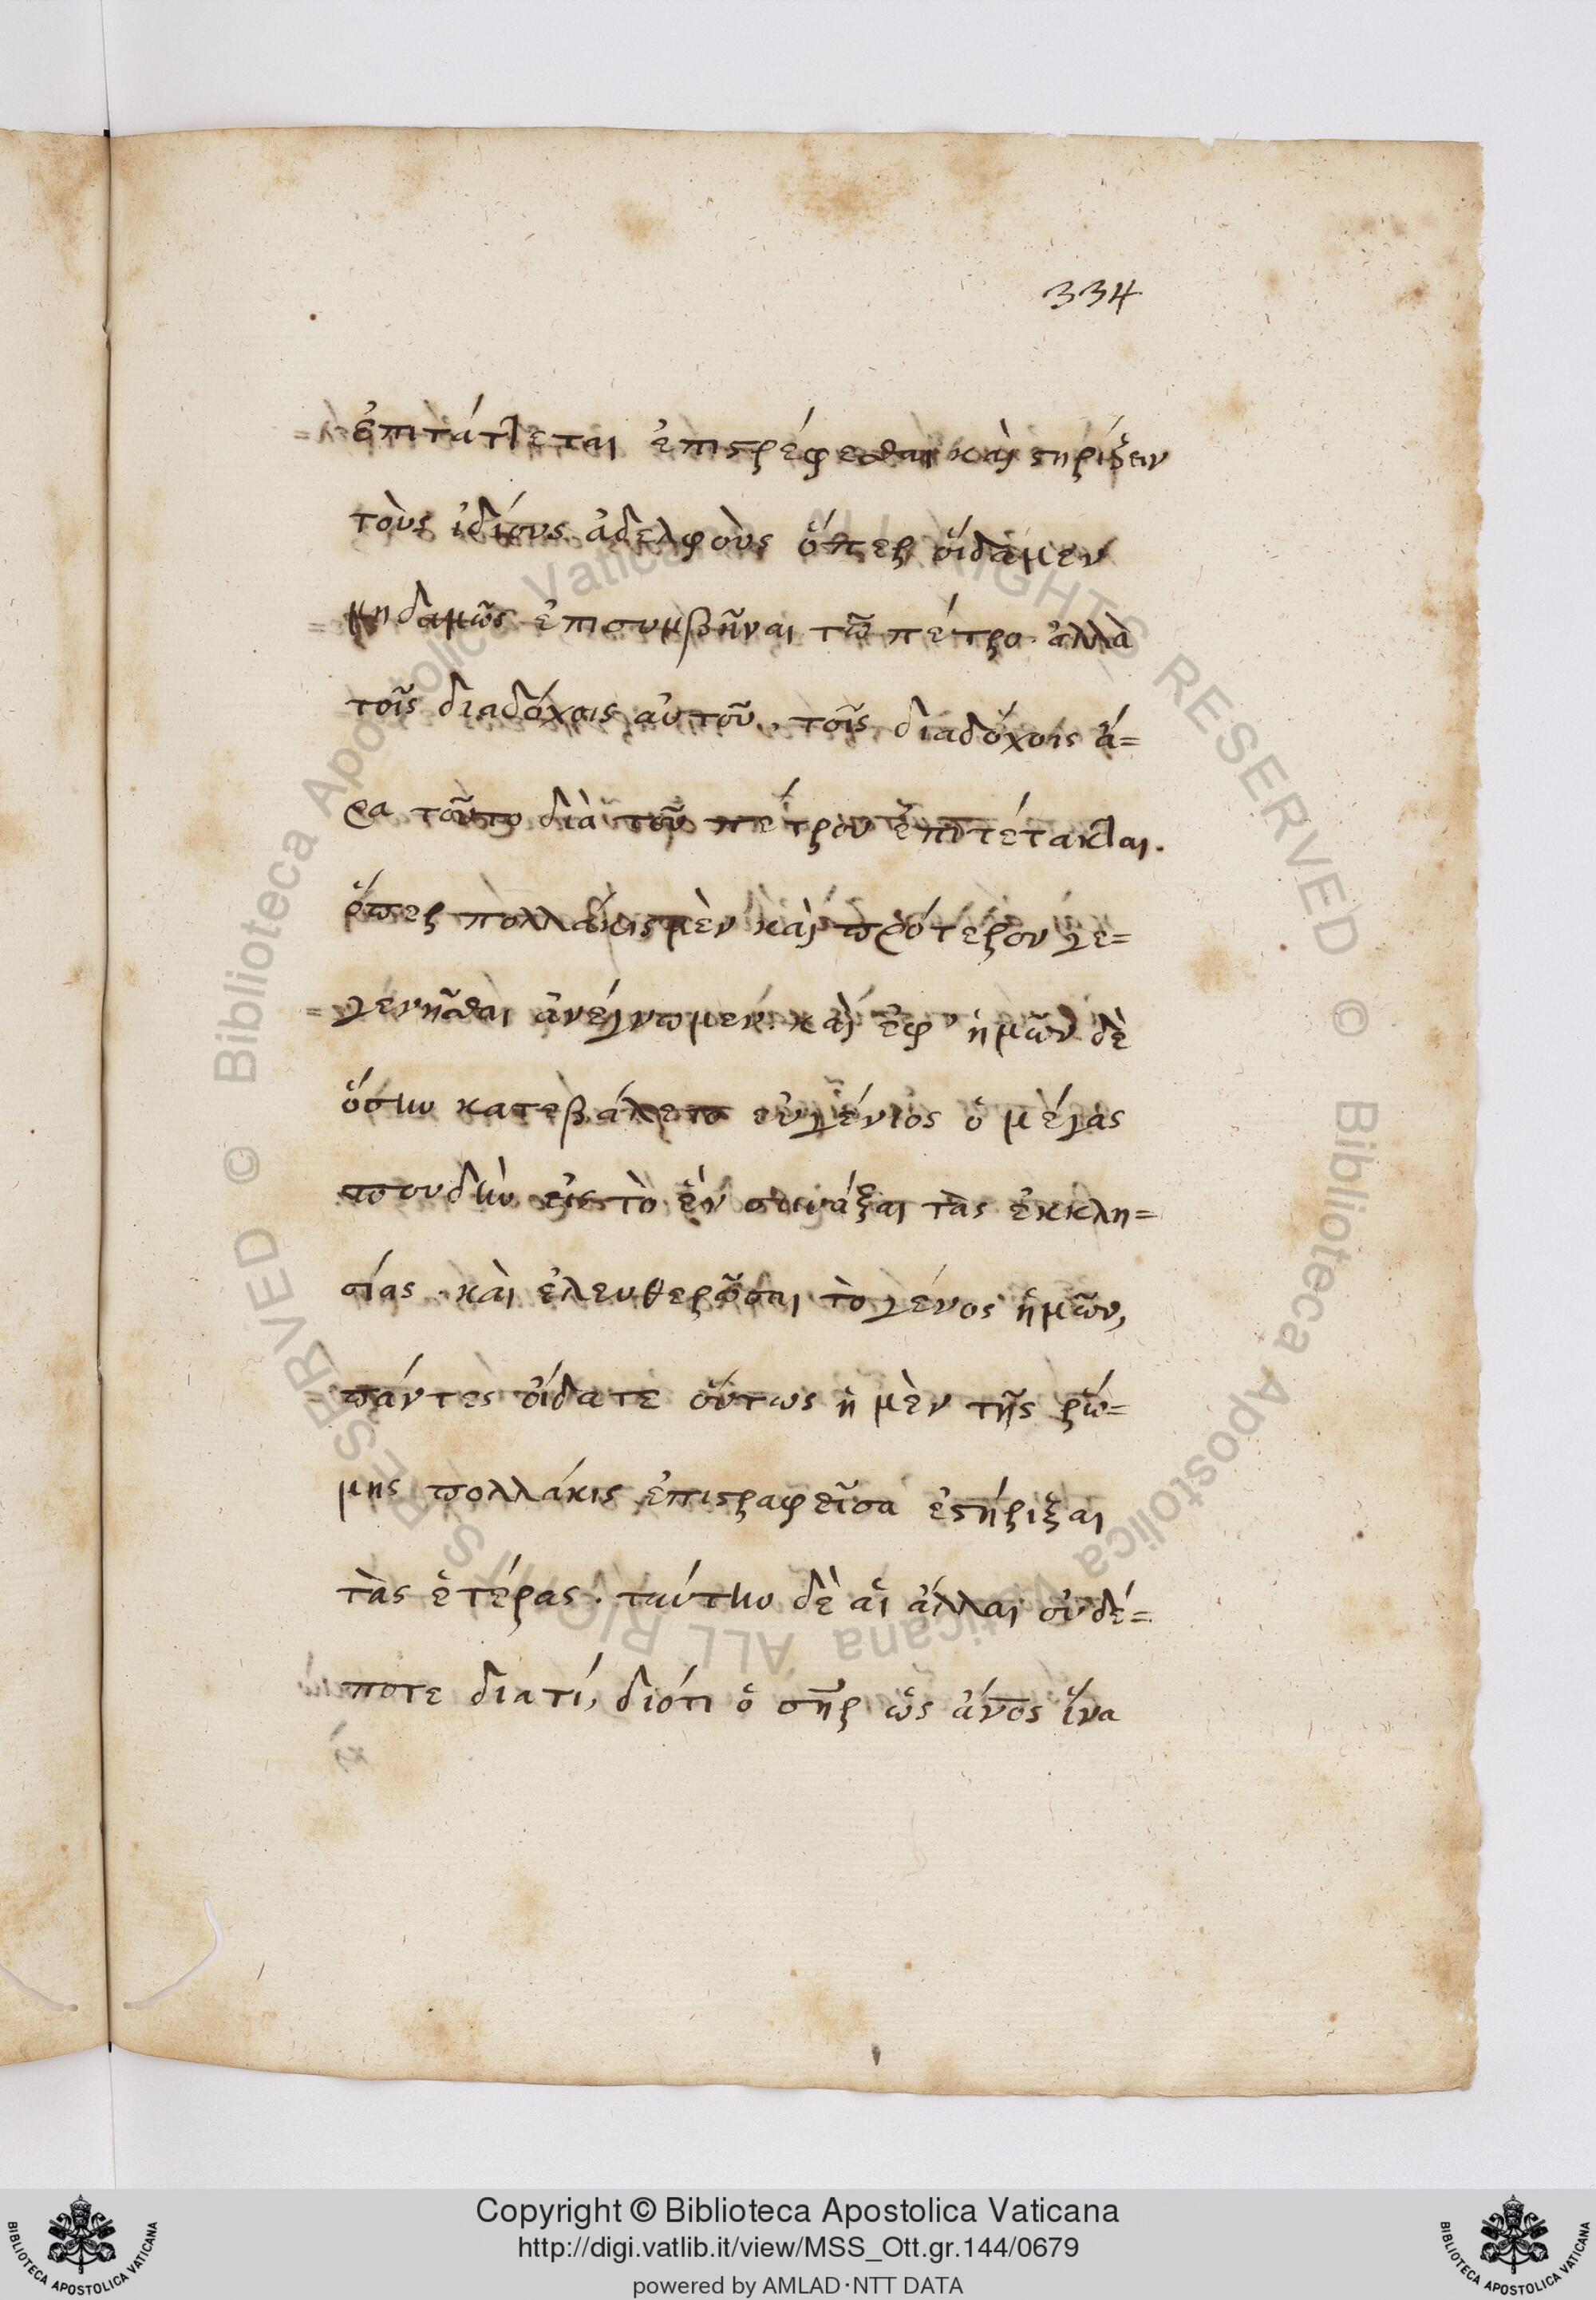 334
ἐπιτάττεται ἐπιστρέφεσθαι καὶ στηρίξειν
τοὺς ἰδίους ἀδελφοὺς ὅπερ οἴδαμεν
μηδαμῶς ἐπισυμβῆναι τῶ πέτρο ἀλλὰ
τοῖς διαδόχοις αὐτοῦ, τοῖς διαδόχοις ἀ=
ρα τοῦτο διὰ τοῦ πέτρου ἐπιτέτακται.
ὅπερ πολλάκις μὲν καὶ πρότερον γε=
γενῆσθαι ἀνέγνωμεν. καὶ ἐφ' ἡμῶν δὲ
ὅσην κατεβάλετο εὐγένιος ὁ μέγας
σπουδὴν εἰς τὸ ἓν συνάξαι τὰς ἐκκλη=
σίας. καὶ ἐλευθερῶσαι τὸ γένος ἡμῶν,
πάντες οἴδατε οὕτως ἡ μὲν τῆς ρώ=
μης πολλάκις ἐπιστραφεῖσα ἐστήριξαι
τὰς ἑτέρας. ταύτην δὲ αἱ ἄλλαι οὐδέ=
ποτε διατί, διότι ὁ σηρ ὡς ἄνος ἵνα
Copyright © Biblioteca Apostolica Vaticana
http://digi.vatlib.it/view/MSS_Ott.gr.144/0679
powered by AMLAD·NTT DATA
BIBLIOTECA APOSTOLICA VATICANA
BIBLIOTECA APOSTOLICA VATICANA
© Biblioteca Apostolica Vaticana ALL RIGHTS RESERVED
© Biblioteca Apostolica Vaticana ALL RIGHTS RESERVED